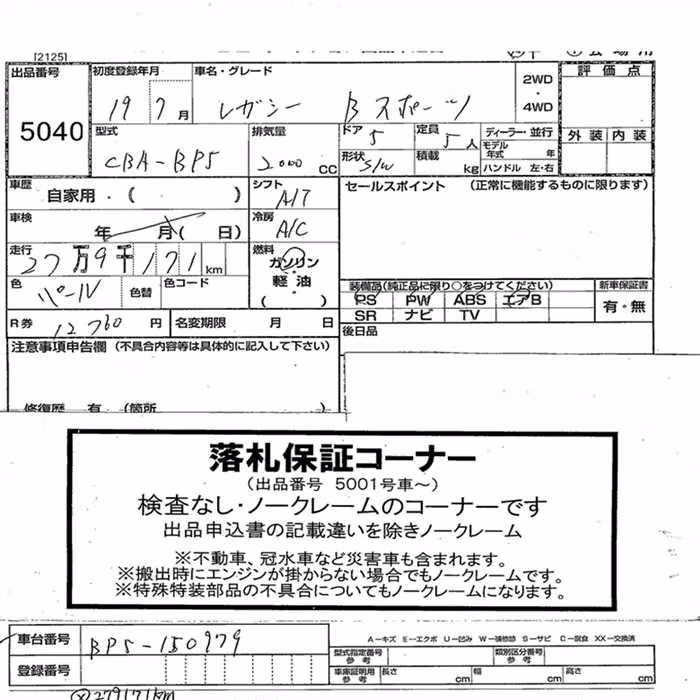 [2125]
出品番号 初度登録年月 車名・グレード 2WD・4WD 評価点
5040 19 7月 レガシー Bスポーツ
型式 排気量 ドア 定員 ディーラー・並行 外装 内装
CBA-BP5 2000 CC 5 5人 モデル年式 年
形状 S/W 積載 kg ハンドル 左・右
車歴 自家用・( ) シフト A/T セールスポイント (正常に機能するものに限ります)
車検 年 月( 日) 冷房 A/C
走行 27万9千171km 燃料 ガソリン 軽油 ( )
装備品(純正品に限り○をつけてください) 新車保証書
色 パール 色替 色コード PS PW ABS エアB 有・無
SR ナビ TV
R券 12760円 名変期限 月 日 後日品
注意事項申告欄 (不具合内容等は具体的に記入して下さい)
修復歴 有 (箇所 )
落札保証コーナー
(出品番号 5001号車~)
検査なし・ノークレームのコーナーです
出品申込書の記載違いを除きノークレーム
※不動車、冠水車など災害車も含まれます。
※搬出時にエンジンが掛からない場合でもノークレームです。
※特殊特装部品の不具合についてもノークレームになります。
車台番号 BP5-150979 A-キズ E-エクボ U-凹み W-補修跡 S-サビ C-腐食 XX-交換済
型式指定番号 参考 類別区分番号 参考
登録番号 車庫証明用 参考 長さ cm 幅 cm 高さ cm
279171km